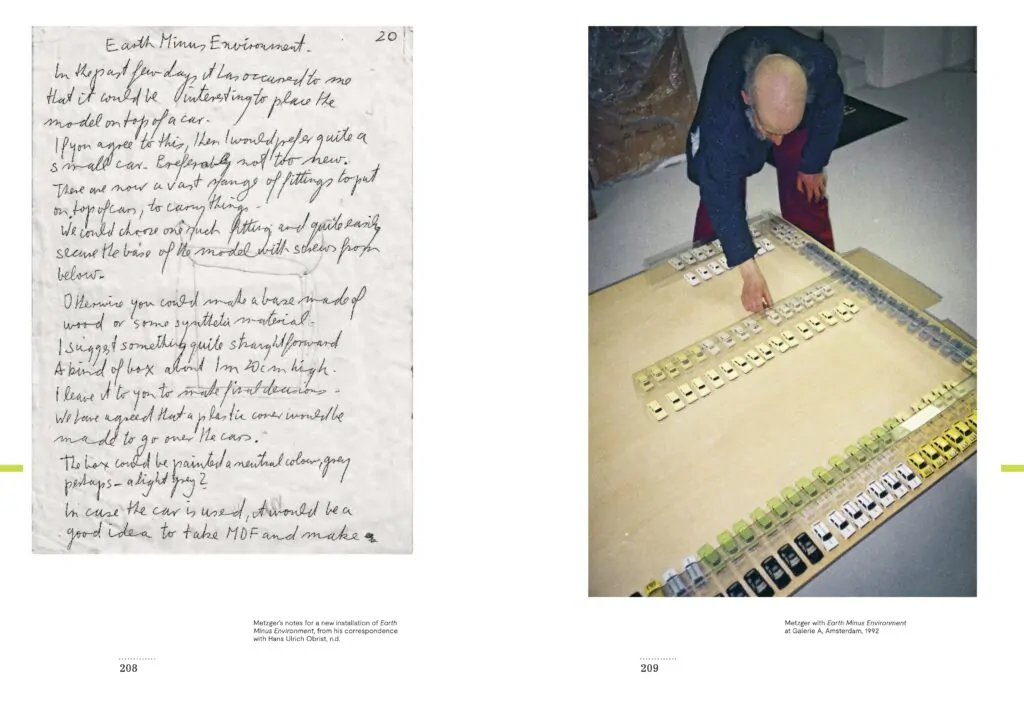 20
Earth Minus Environment.
In the past few days it has occured to me
that it could be interesting to place the
model on top of a car.
If you agree to this, then I would prefer quite a
small car. Preferably not too new.
There are now a vast range of fittings to put
on top of cars, to carry things.
We could choose one such fitting and quite easily
secure the base of the model with screws from
below.
Otherwise you could make a base made of
wood or some synthetic material.
I suggest something quite straightforward
A kind of box about 1m 20cm high.
I leave it to you to make final decisions.
We have agreed that a plastic cover would be
made to go over the cars.
The box could be painted a neutral colour, grey
perhaps – a light grey?
In case the car is used, it would be a
good idea to take MDF and make a
Metzger's notes for a new installation of Earth
Minus Environment, from his correspondence
with Hans Ulrich Obrist, n.d.
208
Metzger with Earth Minus Environment
at Galerie A, Amsterdam, 1992
209